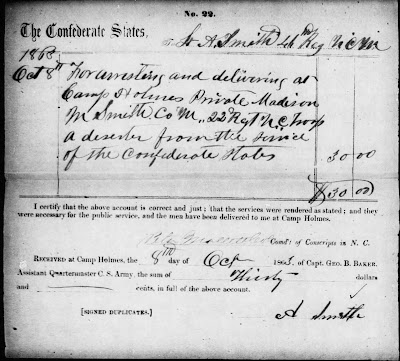 No. 22.
The Confederate States,
To A. Smith
1863
Oct 8th For arresting and delivering at
Camp Holmes Private Madison
M Smith Co M., 22d Rgt N.C. Troop
a deserter from the service
of the Confederate States 30 00
$30 00
I certify that the above account is correct and just; that the services were rendered as stated; and they
were necessary for the public service, and the men have been delivered to me at Camp Holmes.
Comd't of Conscripts in N. C.
Received at Camp Holmes, the 8th day of Oct 1863, of Capt. Geo. B. Baker,
Assistant Quartermaster C. S. Army, the sum of Thirty dollars
and cents, in full of the above account.
A Smith
[SIGNED DUPLICATES.]